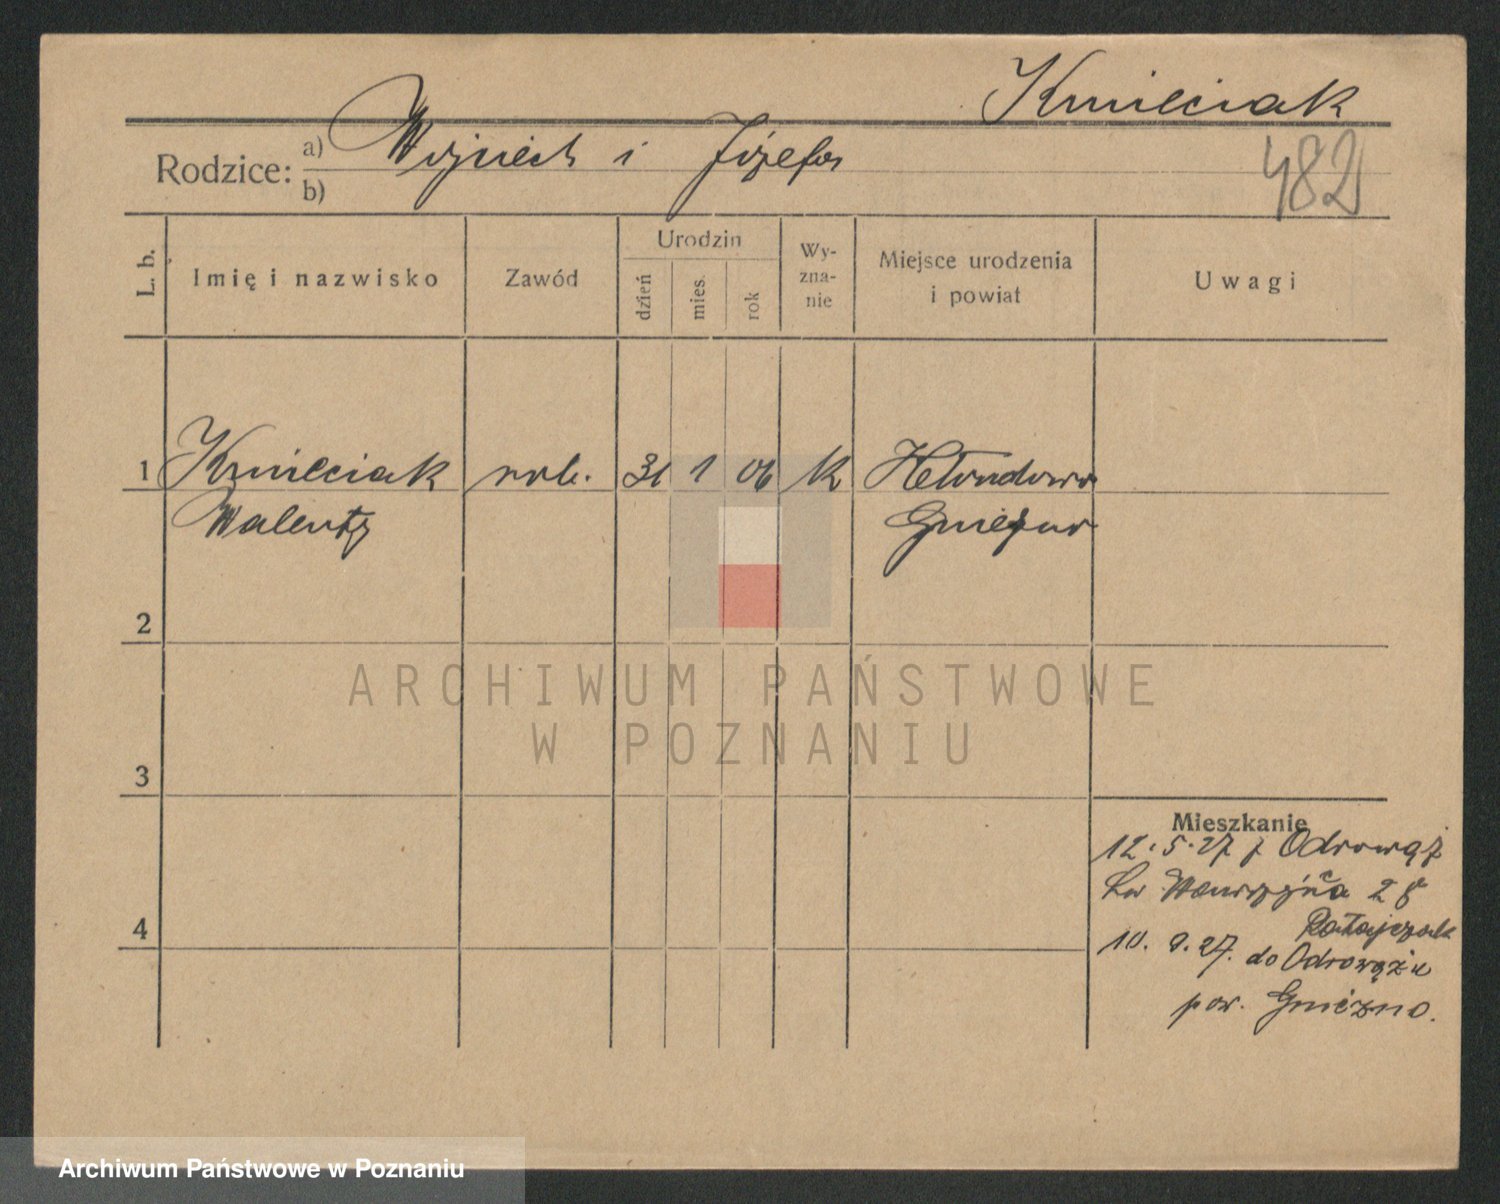 Kmieciak
482
Rodzice: a) Wojciech i Józefa
b)
L. b.
Imię i nazwisko
Zawód
Urodzin
dzień
mies.
rok
Wy-
zna-
nie
Miejsce urodzenia
i powiat
Uwagi
1 Kmieciak rob. 31 1 06 k
Walenty
2
3
4
Mieszkanie
12. 5. 27 z Odrowąż
św Wawrzyńca 28
Ratajczak
10. 9. 27. do Odrowąża
pow. Gniezno.
ARCHIWUM PAŃSTWOWE
W POZNANIU
Archiwum Państwowe w Poznaniu